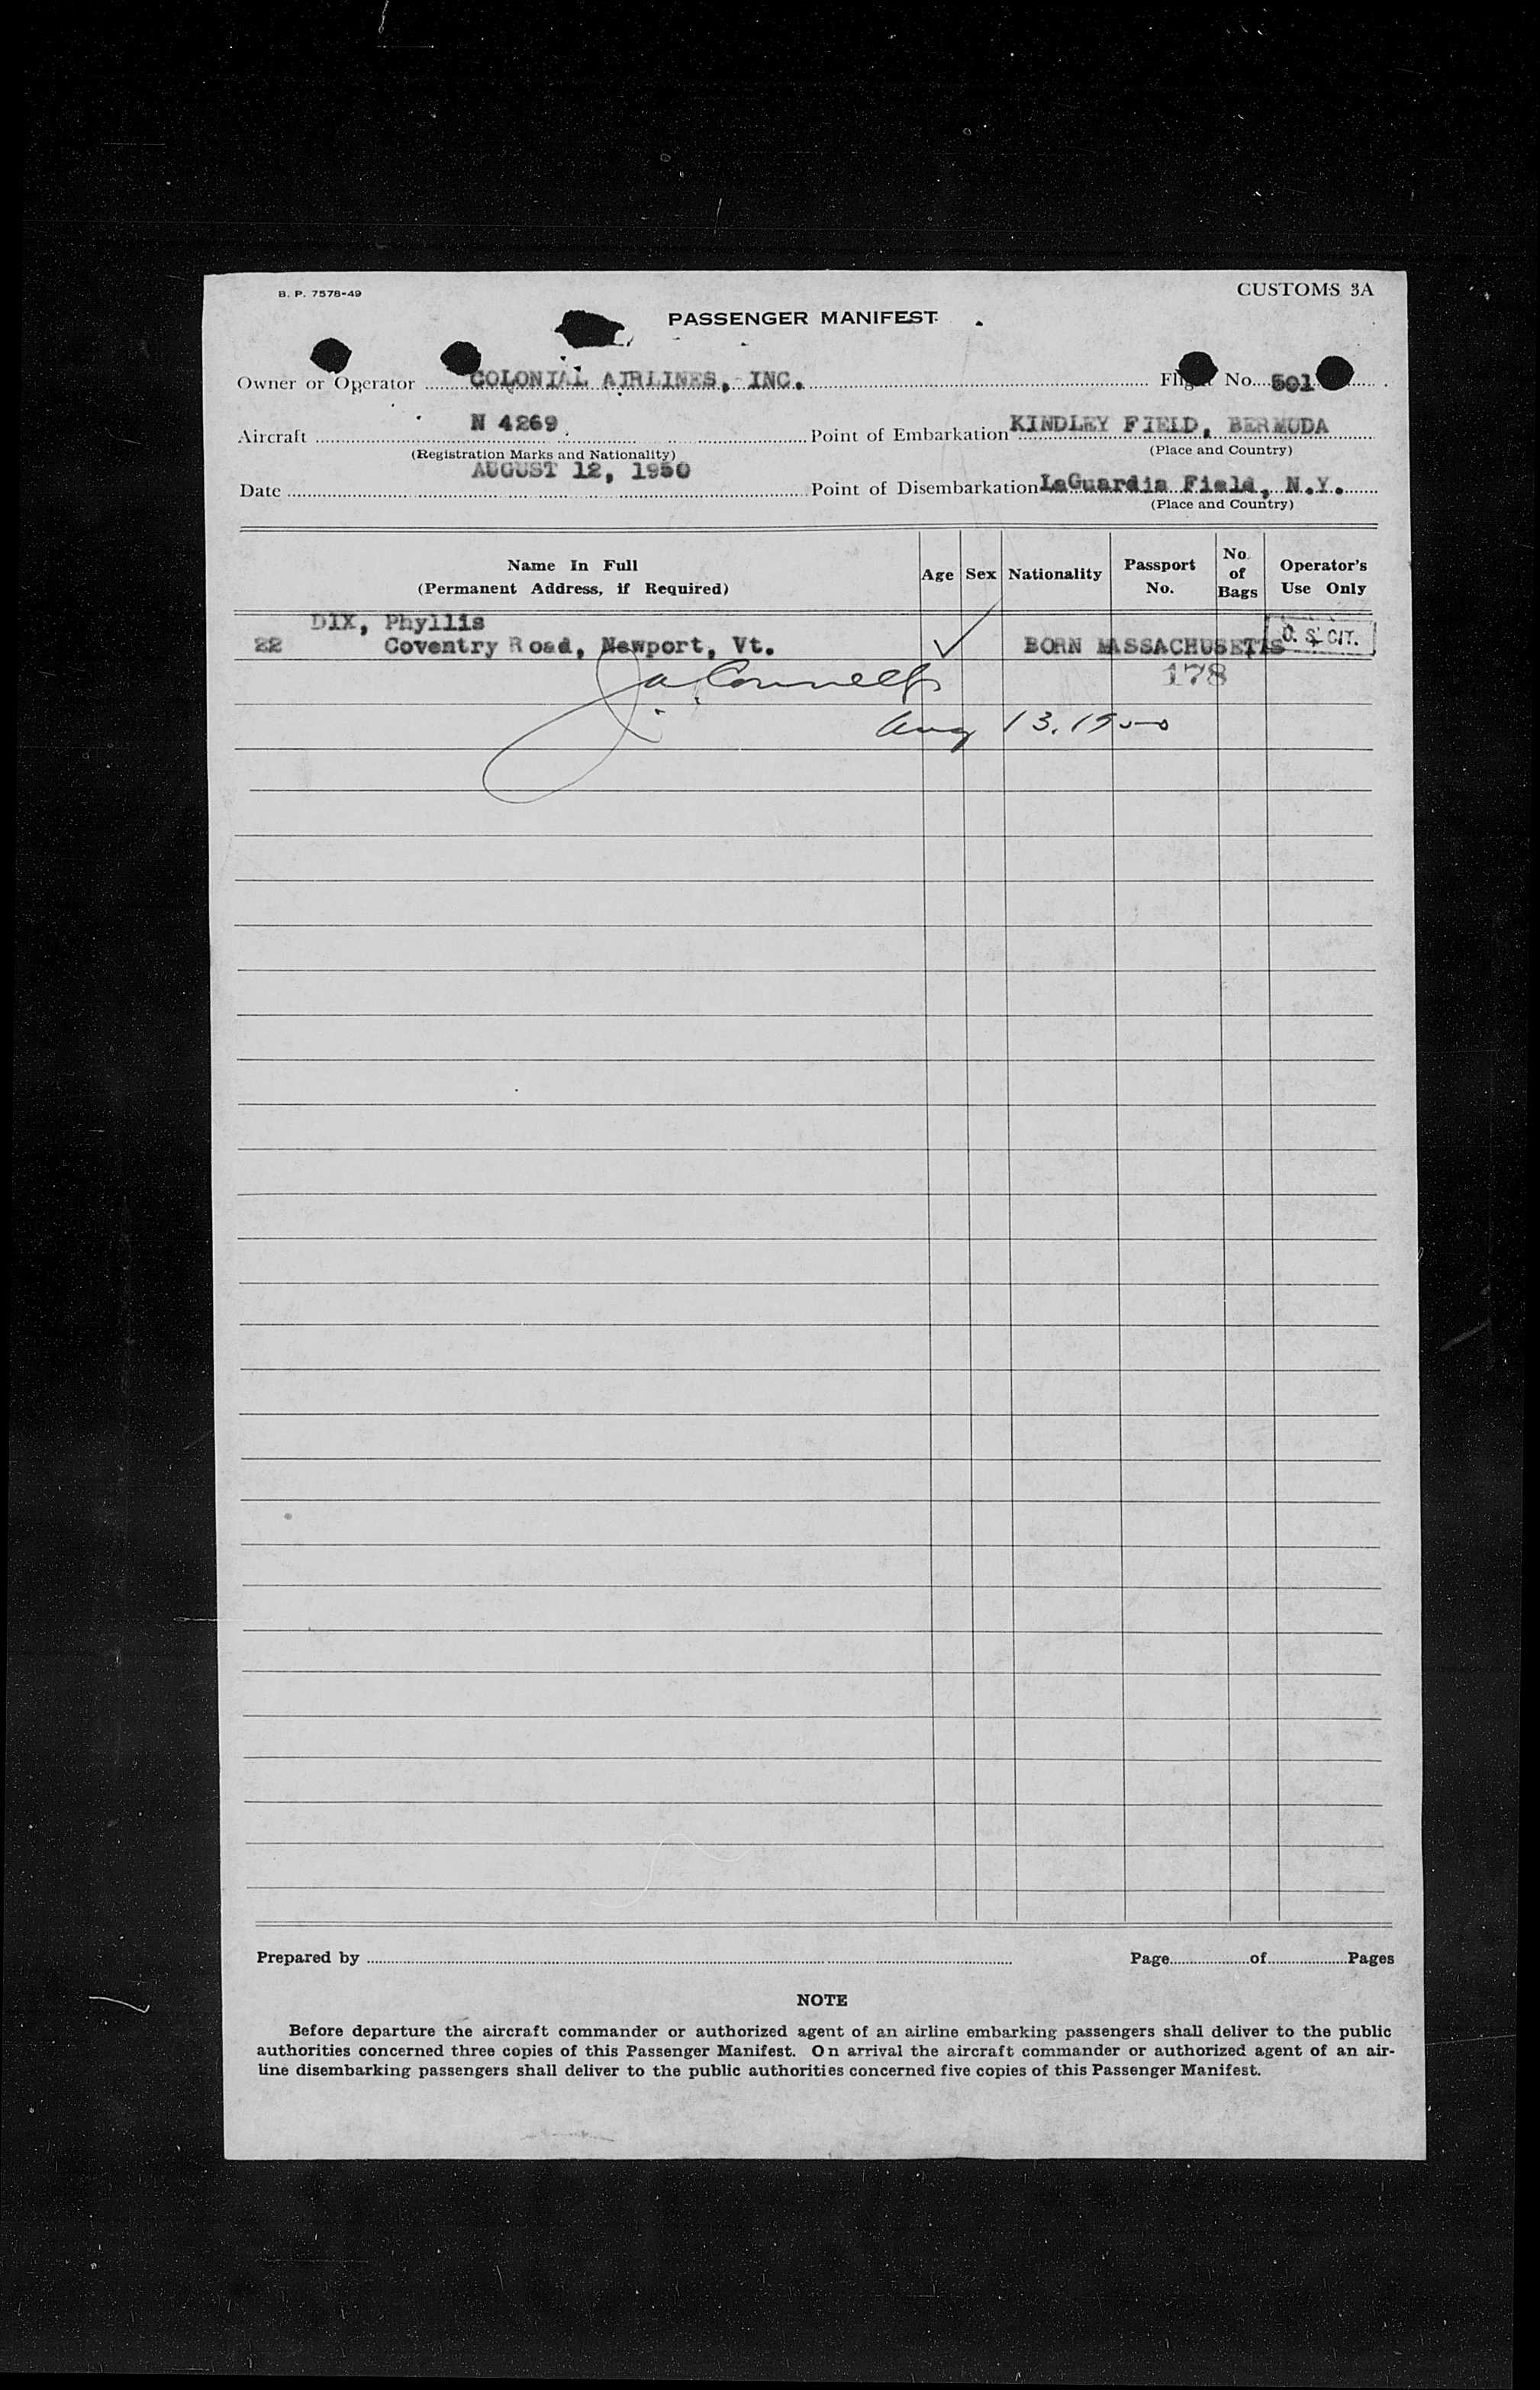 B. P. 7578-49
CUSTOMS 3A
PASSENGER MANIFEST
Owner or Operator COLONIAL AIRLINES, INC. Flight No. 501
Aircraft N 4269 Point of Embarkation KINDLEY FIELD, BERMUDA
(Registration Marks and Nationality) (Place and Country)
Date AUGUST 12, 1950 Point of Disembarkation LaGuardia Field, N.Y.
(Place and Country)
Name In Full
(Permanent Address, if Required)
Age
Sex
Nationality
Passport
No.
No.
of
Bags
Operator's
Use Only
DIX, Phyllis
22 Coventry Road, Newport, Vt. ✓ BORN MASSACHUSETTS U. S. CIT.
178
Aug 13. 1950
Prepared by Page of Pages
NOTE
Before departure the aircraft commander or authorized agent of an airline embarking passengers shall deliver to the public
authorities concerned three copies of this Passenger Manifest. On arrival the aircraft commander or authorized agent of an air-
line disembarking passengers shall deliver to the public authorities concerned five copies of this Passenger Manifest.